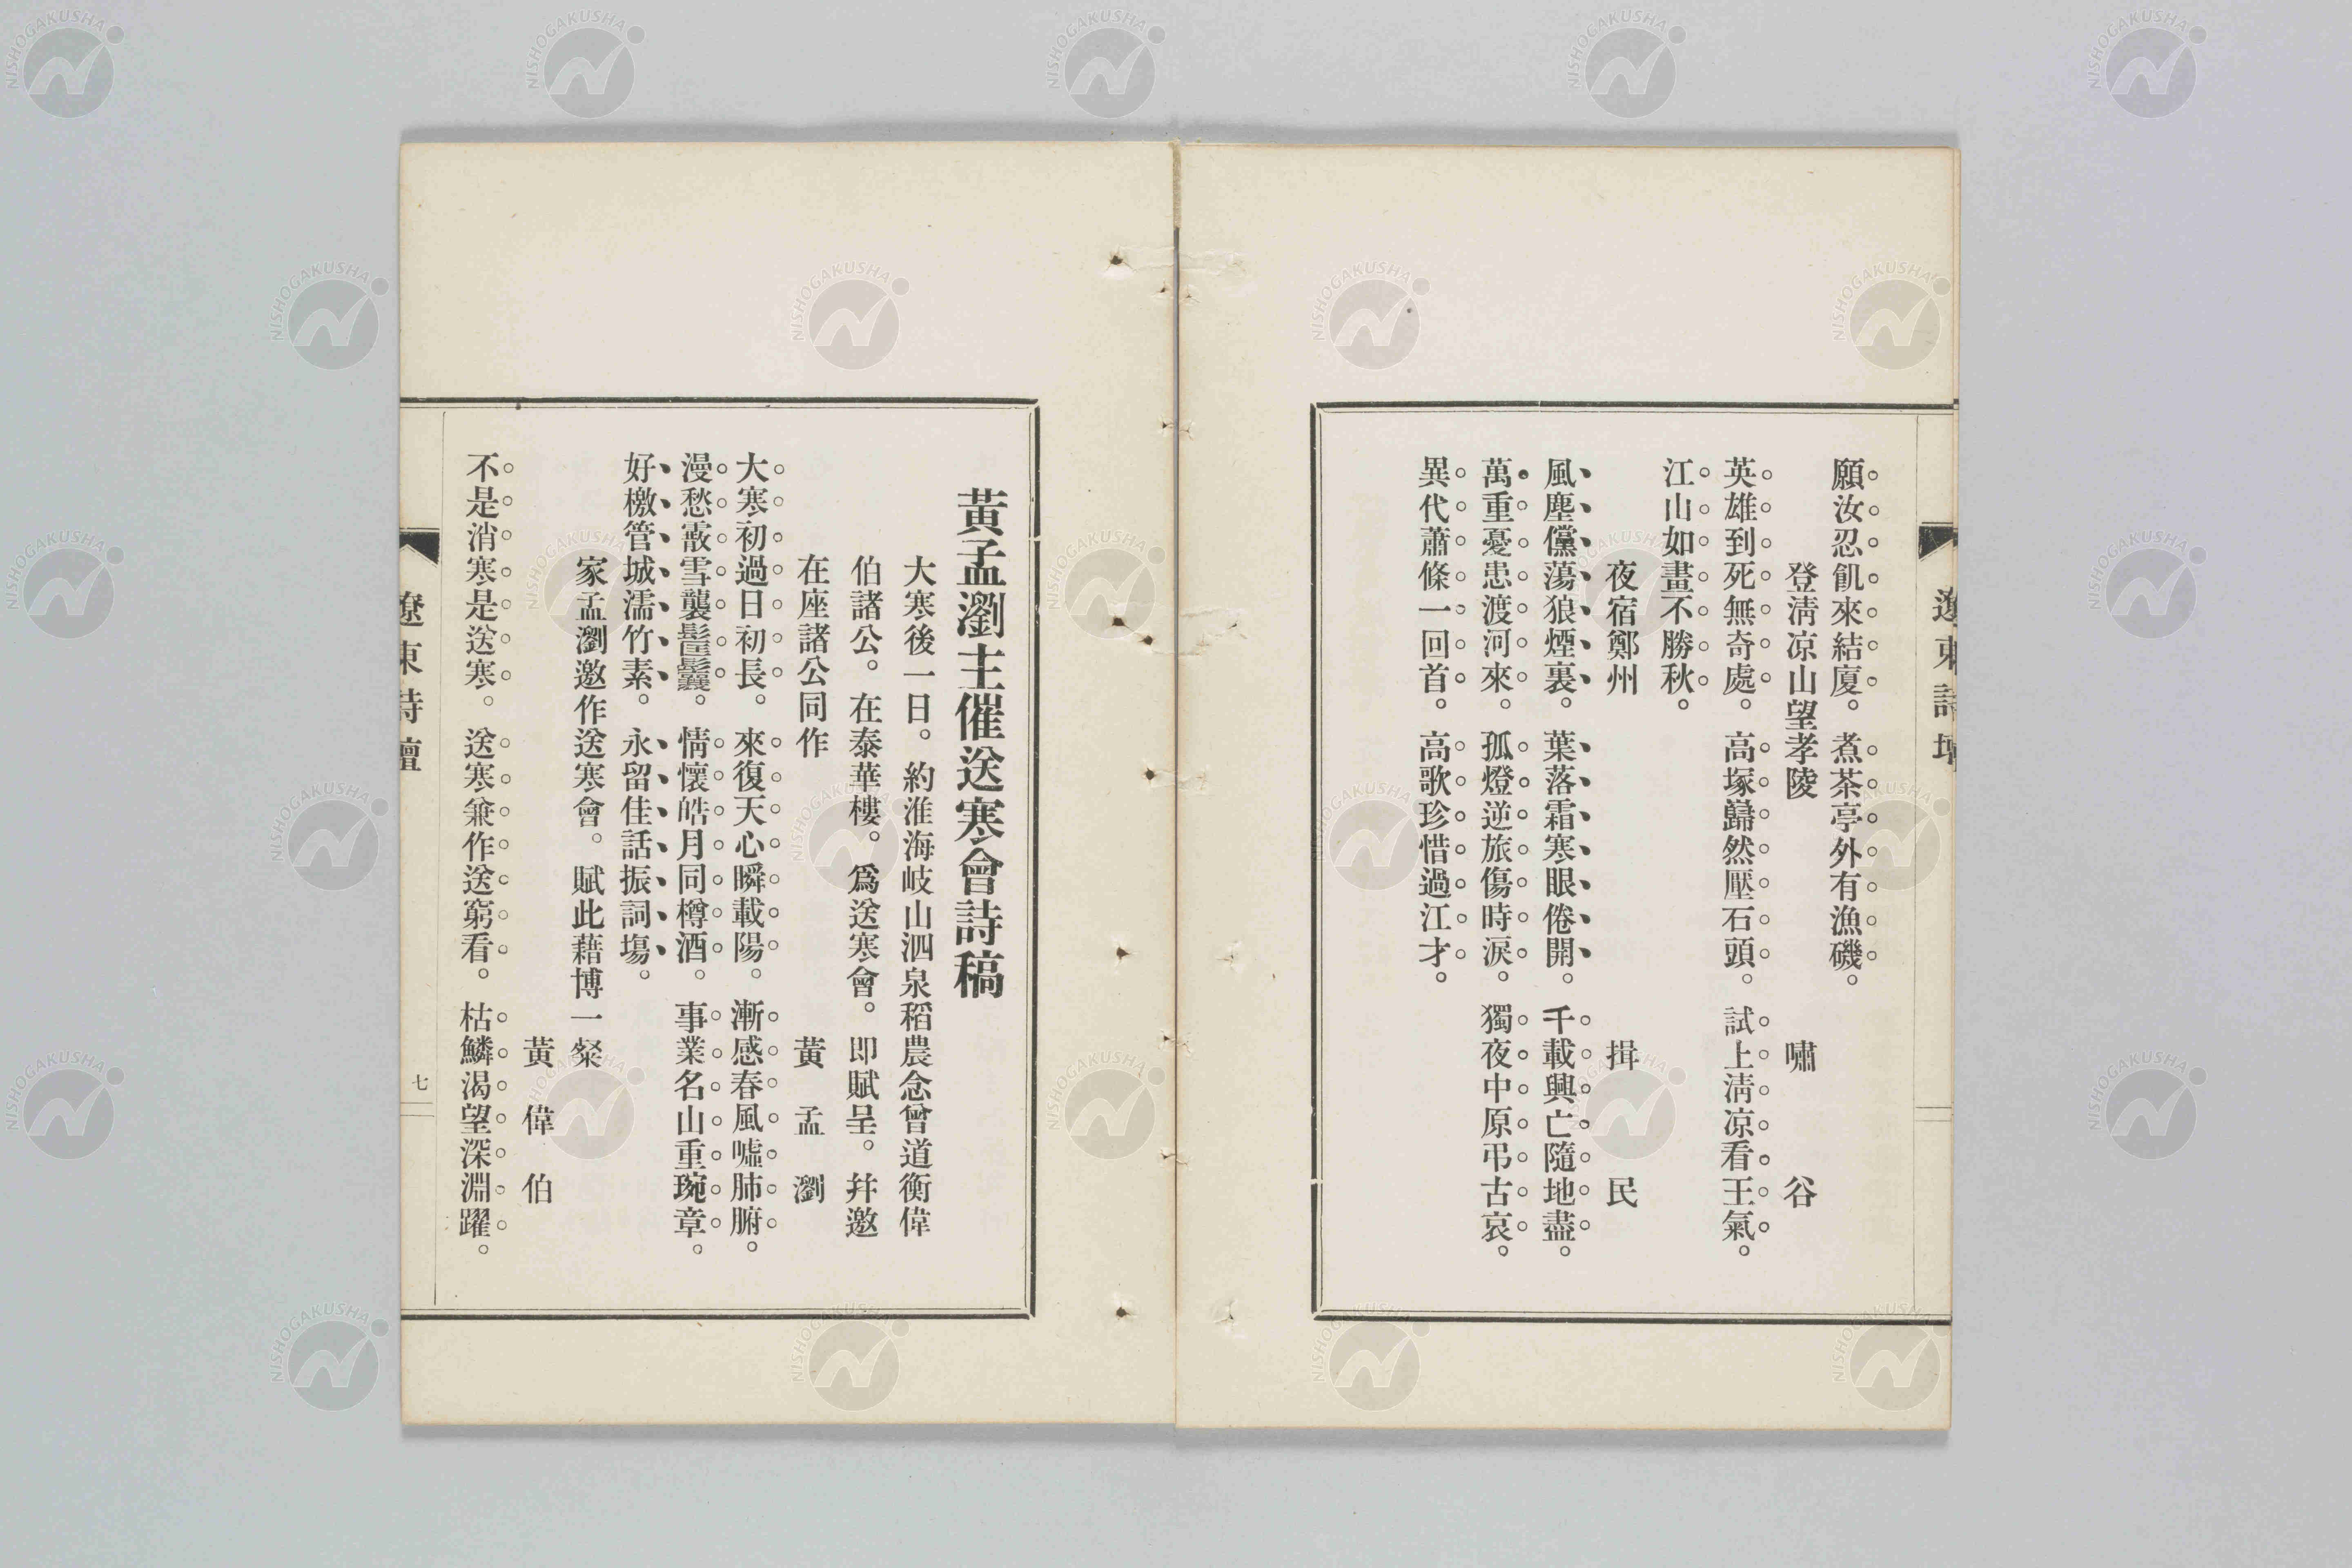 遼東詩壇
願汝忍飢來結廈。煮茶亭外有漁磯。
登淸凉山望孝陵　嘯谷
英雄到死無奇處。高塚巋然壓石頭。試上淸凉看王氣。
江山如畫不勝秋。
夜宿鄭州　揖民
風塵儻蕩狼煙裏。葉落霜寒眼倦開。千載興亡隨地盡。
萬重憂患渡河來。孤燈逆旅傷時淚。獨夜中原弔古哀。
異代蕭條一回首。高歌珍惜過江才。
黃孟瀏主催送寒會詩稿
大寒後一日。約淮海岐山泗泉稻農念曾道衡偉
伯諸公。在泰華樓。爲送寒會。即賦呈。幷邀
在座諸公同作　黃孟瀏
大寒初過日初長。來復天心瞬載陽。漸感春風噓肺腑。
漫愁霰雪襲髶鬟。情懷皓月同樽酒。事業名山重琬章。
好檄管城濡竹素。永留佳話振詞塲。
家孟瀏邀作送寒會。賦此藉博一粲
黃偉伯
不是消寒是送寒。送寒兼作送窮看。枯鱗渴望深淵躍。
遼東詩壇
七
NISHOGAKUSHA